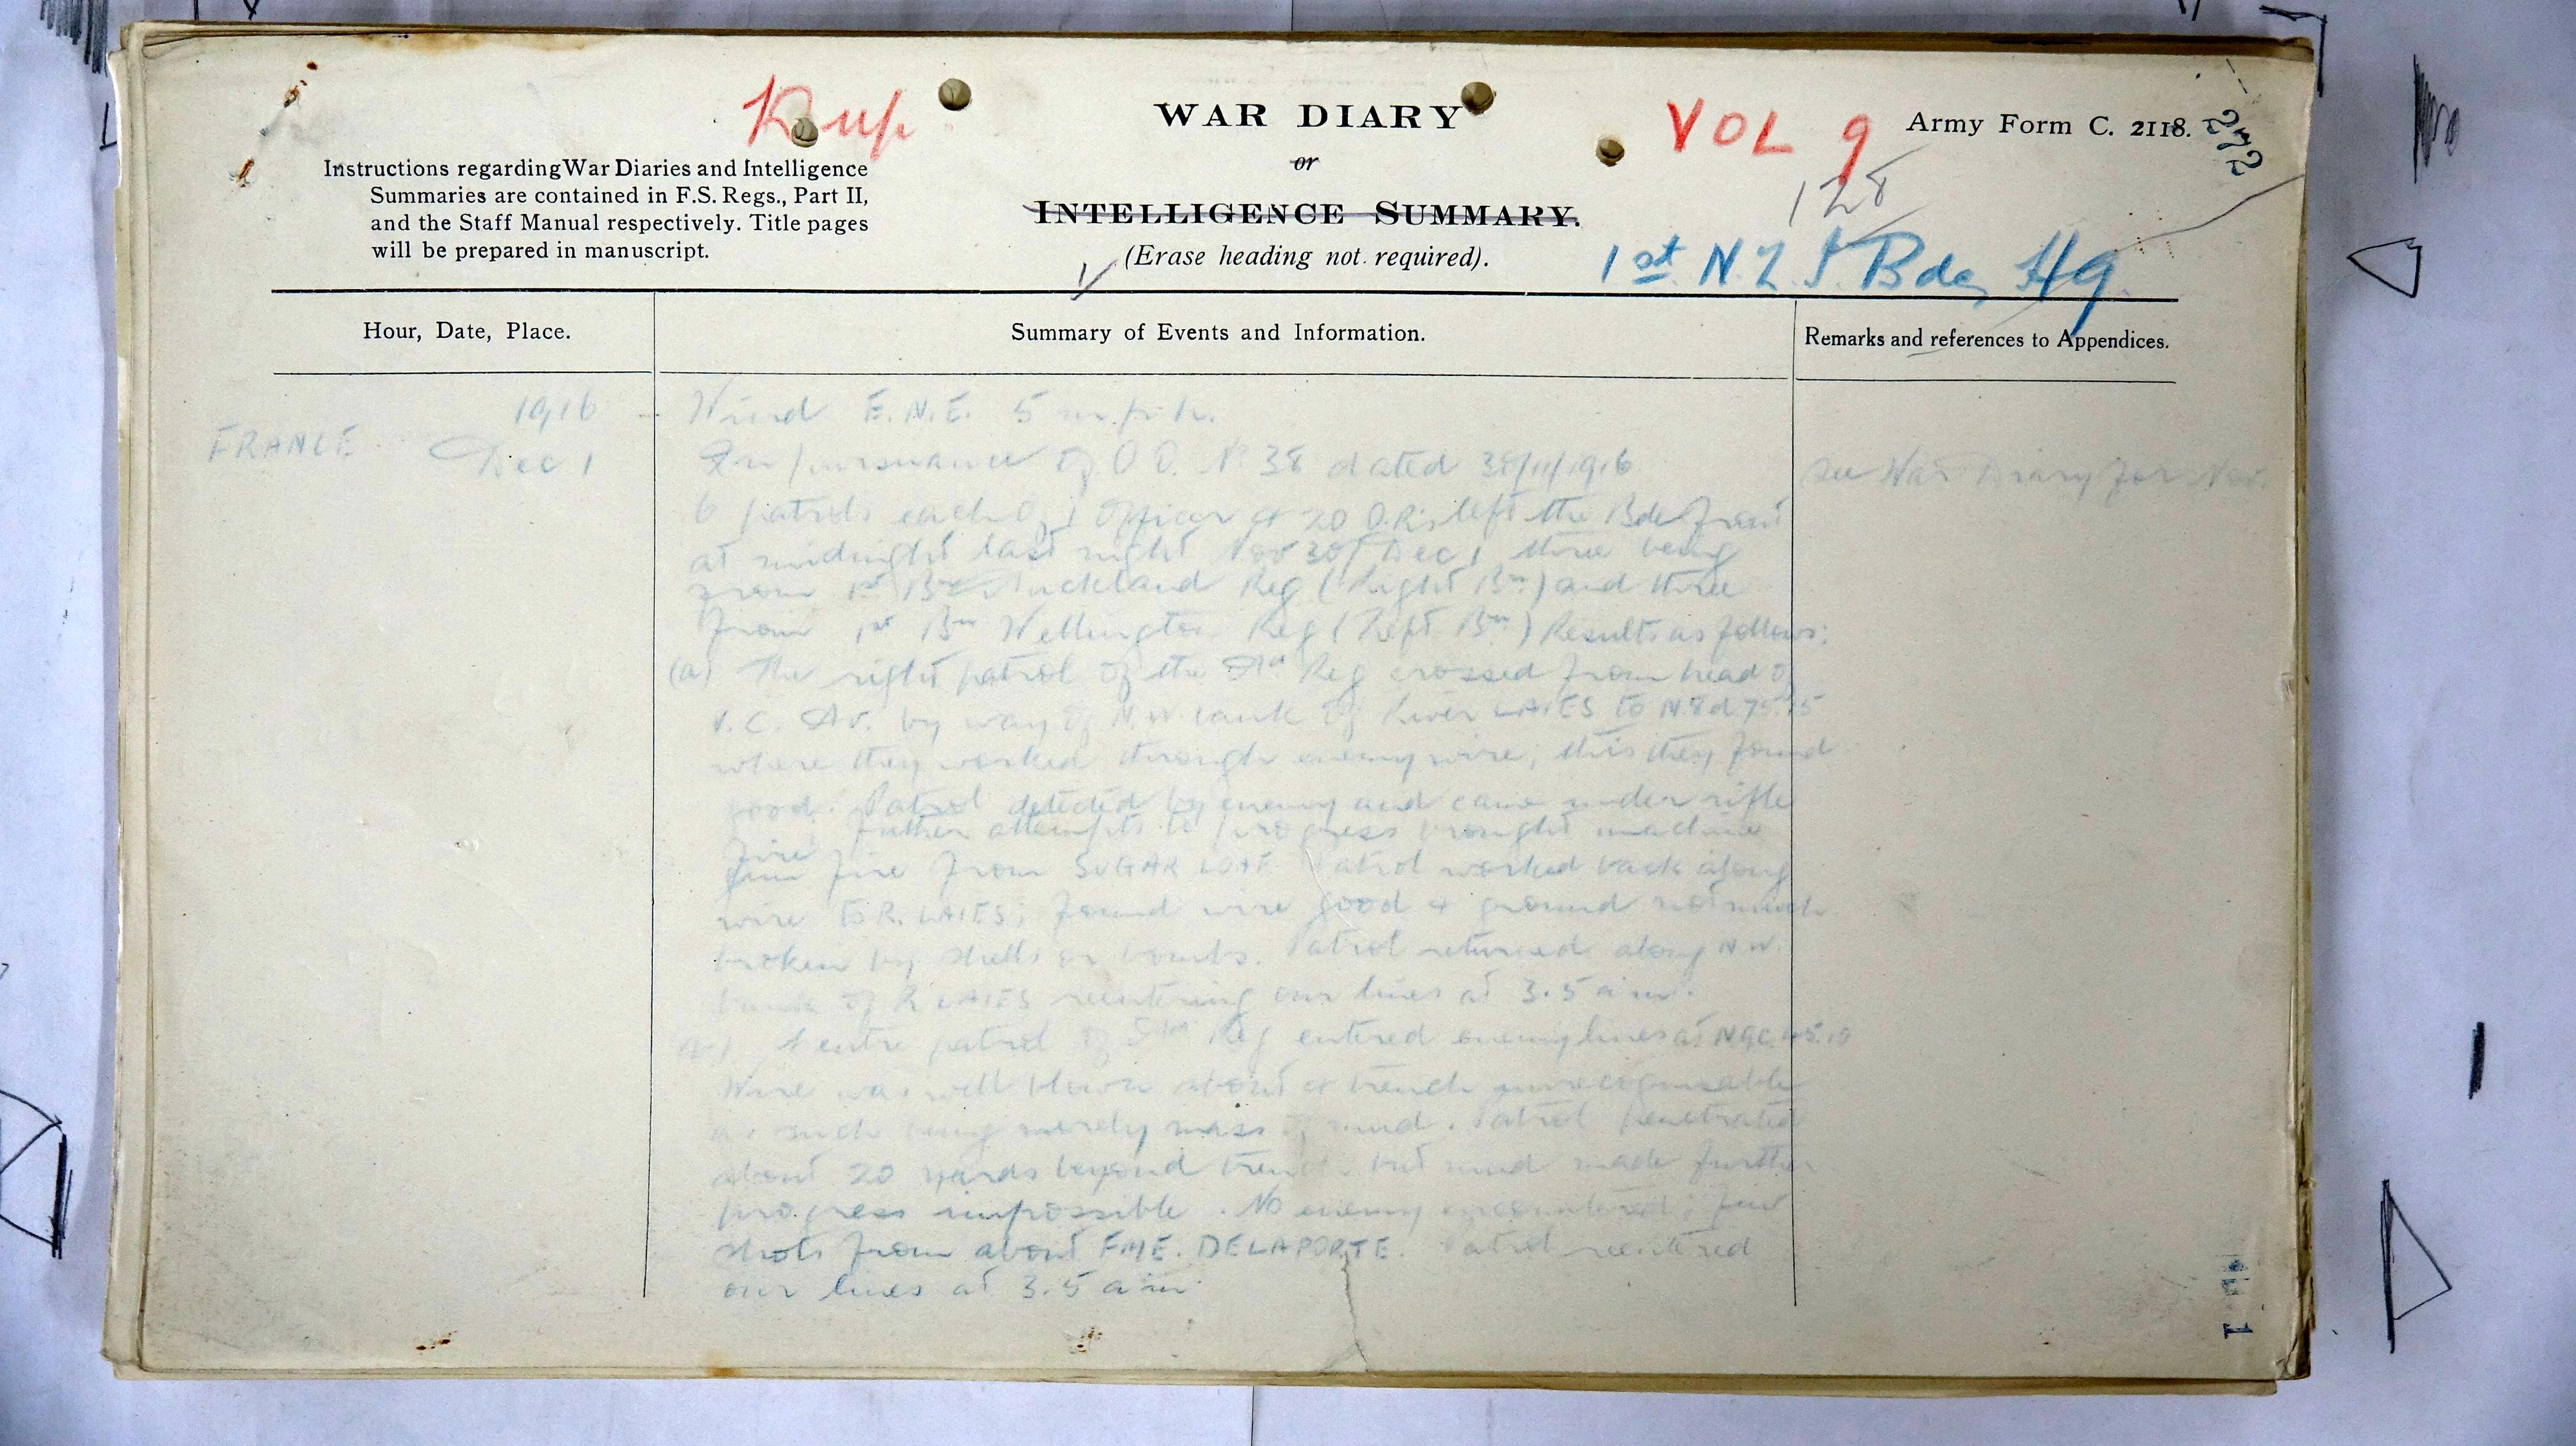 WAR DIARY
or
INTELLIGENCE SUMMARY.
(Erase heading not required).
Instructions regarding War Diaries and Intelligence
Summaries are contained in F.S. Regs., Part II,
and the Staff Manual respectively. Title pages
will be prepared in manuscript.
VOL 9
Army Form C. 2118.
128
1st N Z I Bde HQ
Hour, Date, Place.
Summary of Events and Information.
Remarks and references to Appendices.
1916
FRANCE Dec 1
Wind E.N.E. 5 m.p.h.
In pursuance of O O. No 38 dated 30/11/1916
See War Diary for Nov.
6 patrols each of 1 Officer & 20 O.R's left the Bde front
at midnight last night Nov 30/Dec 1 three being
from 1st Bn Auckland Reg (Right Bn) and three
from 1st Bn Wellington Reg (Left Bn) Results as follows:
(a) The right patrol of the Reg crossed from head of
V.C. Av. by way of N.W. bank of River LAIES to N.8d.75.15
where they worked through enemy wire, this they found
good. Patrol detected by enemy and came under rifle
fire further attempts to progress brought machine
gun fire from SUGAR LOAF Patrol worked back along
wire to R. LAIES; found wire good & ground not much
broken by shells or bombs. Patrol returned along N W.
bank of R LAIES reentering our lines at 3.5 a.m.
Centre patrol of Reg entered enemy lines at N9c.45.10
Wire was well blown about & trench unrecognisable
as such being merely mass of mud. Patrol penetrated
about 20 yards beyond trench but mud made further
progress impossible. No enemy encountered, few
shots from about FME. DELAPORTE. Patrol reentered
our lines at 3.5 a.m.